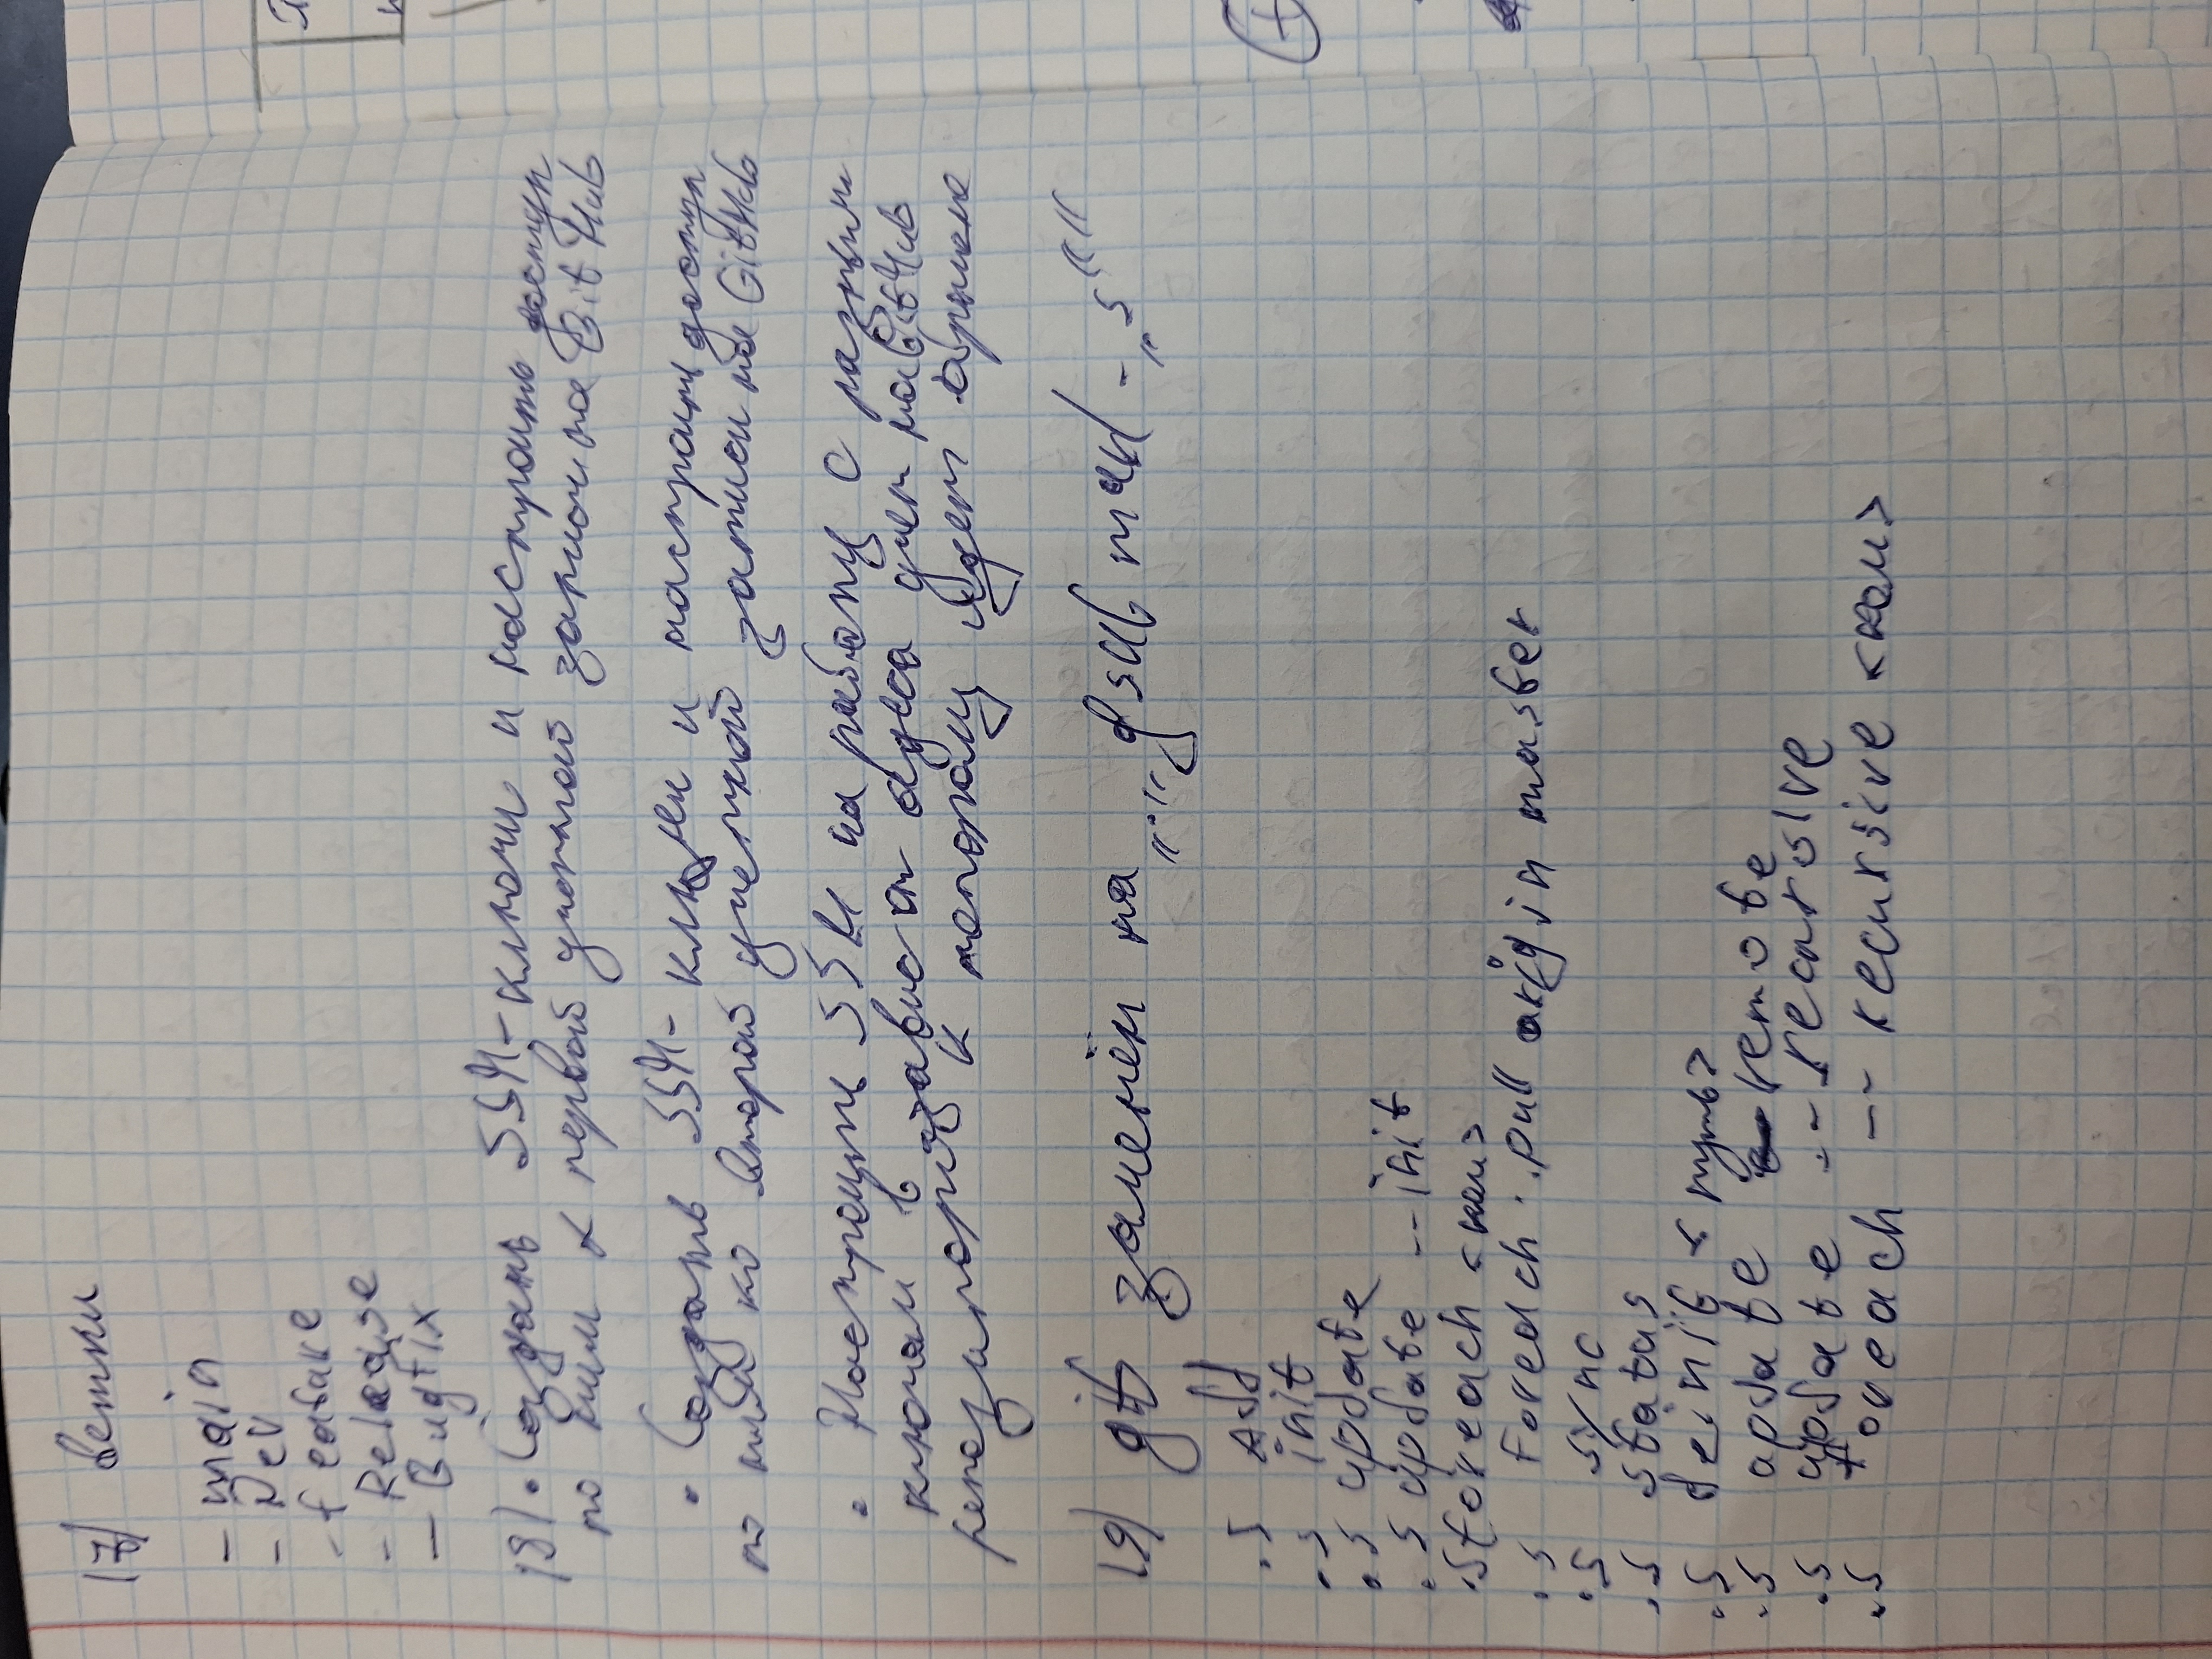 17) Ветки
- main
- Dev
- feature
- Release
- Bugfix
18). Создать SSH-ключи и настроить доступ
по ним к первой учетной записи на GitHub
. Создать SSH-ключи и настроить доступ
по ним ко второй учетной записи на GitHub
. Настроить SSH на работу с разными
ключами в завис от адреса учет на GitHub
репозитория к которому идет обращение
19) git заменён на „." submod - „s"
.s Add
.s init
.s update
.s update --init
.s foreach <ком>
.s foreach . pull origin master
.s sync
.s status
.s deinit <путь>
.s update remote
.s update -- recursive
.s foreach -- recursive <ком>